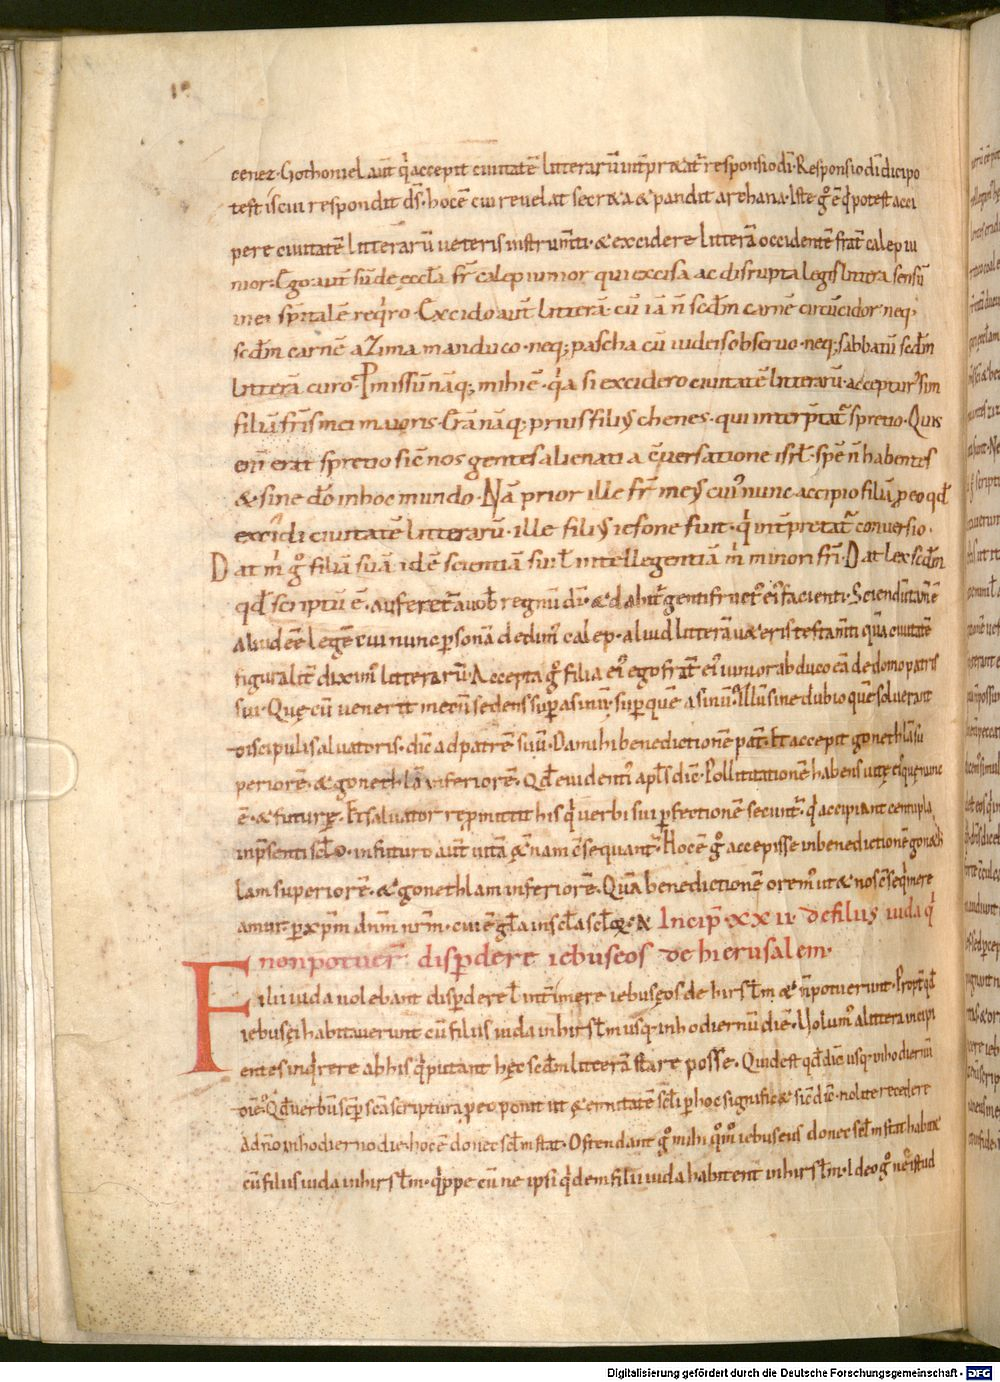 cenez· Gothoniel aut̄ q̇ accepit ciuitatē litterarū int̄pr&at̄ responsio dī· Responsio dī dici po
test is cui respondit d̄s· hoc ē cui reuelat secr&a & pandit archana· Iste ḡ ē q̇ potest acci
pere ciuitatē litterarū ueteris instrum̄ti· & excidere litterā occidentē frat̄ calep iu
nior· Ego aut̄ sū de eccl̄a fr̄ calep iunior qui excisa ac disrupta legis littera sensū
mei sp̄italē req̇ro· Excido aut̄ litterā· cū iā n̄ scd̄m carnē circūcidor neq;
scd̄m carnē aZima manduco· neq; pascha cū iudeis obseruo· neq; sabbatū scd̄m
litterā curo· P̄missū nāq; mihi ē· q̇a si excidero ciuitatē litterarū· accepturꝰ sim
filiā fr̄is mei maioris· Erā nāq; prius filiꝰ chenes· qui interp̄tat̄ spretio· Quis
eni erat spretio sic̄ nos gentes alienati a c̄uersatione isrl̄· spē n̄ habentes
& sine d̄o in hoc mundo· Nā prior ille fr̄ meꝰ cuiꝰ nunc accipio filiā ꝑ eo qd̄
excidi ciuitatē litterarū· ille filiꝰ iefone fuit· q̇ int̄pretat̄ conuersio·
Dat ṁ ḡ filiā suā· id ē scientiā suā l̄ intellegentiā ṁ minori fr̄i· Dat lex scd̄m
qd̄ scriptū ē· auferet̄ a uob̄ regnū dī· & dabit̄ genti fructꝰ eiꝰ facienti· Sciendū tam̄ ē
aliud eē legē cui nunc ꝑsonā dedimꝰ calep· aliud litterā u&eris testam̄ti quā ciuitatē
figuralit̄ diximꝰ litterarū· Accepta ḡ filia eiꝰ ego frat̄ eiꝰ iunior abduco eā de domo patris
sui· Quę cū uenerit mecū sedens suꝑ asinū· suꝑ quē asinū? Illū sine dubio quē soluerant
discipuli saluatoris· dic̄ ad patrē suū· Da mihi benedictionē pat̄· Et accepit gonethlā su
periorē· & gonethlā inferiorē· Qd̄ euident̄ apl̄s dic̄· Pollicitationē habens uitę eiꝰ quę nunc
ē· & futurę· Et saluator rep̄mittit his q̇ uerbi sui ꝑfectionē secunt̄· q̇ accipiant centupla
in p̄senti scl̄o· in futuro aut̄ uitā &nam c̄sequant̄· Hoc ē ḡ accepisse in benedictionē goneth
lam superiorē· & gonethlam inferiorē· Quā benedictionē oremꝰ ut & nos c̄seq̇ mere
amur· ꝑ xp̄m dn̄m nr̄m· cui ē gl̄a in scl̄a scl̄oꝝ· &
Incip̄ xxii· de filiis iuda q̇
non potuer̄ disꝑdere iebuseos de hierusalem·
Filii iuda uolebant disꝑdere l̄ int̄imere iebusęos de hirsl̄m & n̄ potuerunt· Propt̄ qd̄
iebusęi habitauerunt cū filiis iuda in hirsl̄m usq; in hodiernū diē· Uolumꝰ a littera incipi
entes inq̇rere ab his q̇ putant hęc scd̄m litterā stare posse· Quid est qd̄ dic̄ usq; in hodiernū
diē? Qd̄ uerbū sēp sc̄a scriptura ꝑ eo ponit ut &ernitatē scl̄i ꝑ hoc signific&· sic̄ dic̄· nolite recedere
a dn̄o in hodierno die· hoc ē donec scl̄m stat· Ostendant ḡ mihi q̊m̊ iebuseus donec scl̄m stat habit&
cū filiis iuda in hirsl̄m· q̇ppe cū ne ipsi q̇dem filii iuda habitent in hirsl̄m· Ideo ḡ ne istud
Digitalisierung gefördert durch die Deutsche Forschungsgemeinschaft - DFG